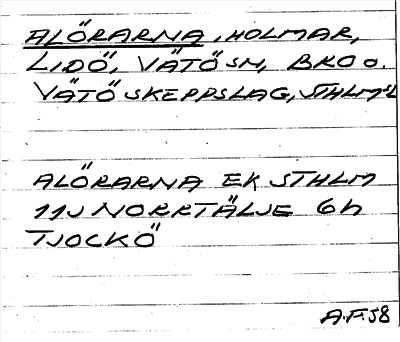 ALÖRARNA, HOLMAR,
LIDÖ, VÄTÖ SN, BRO O.
VÄTÖ SKEPPSLAG, STHLM:L
ALÖRARNA EK STHLM
11J NORRTÄLJE 6h
TJOCKÖ
A.F. 58